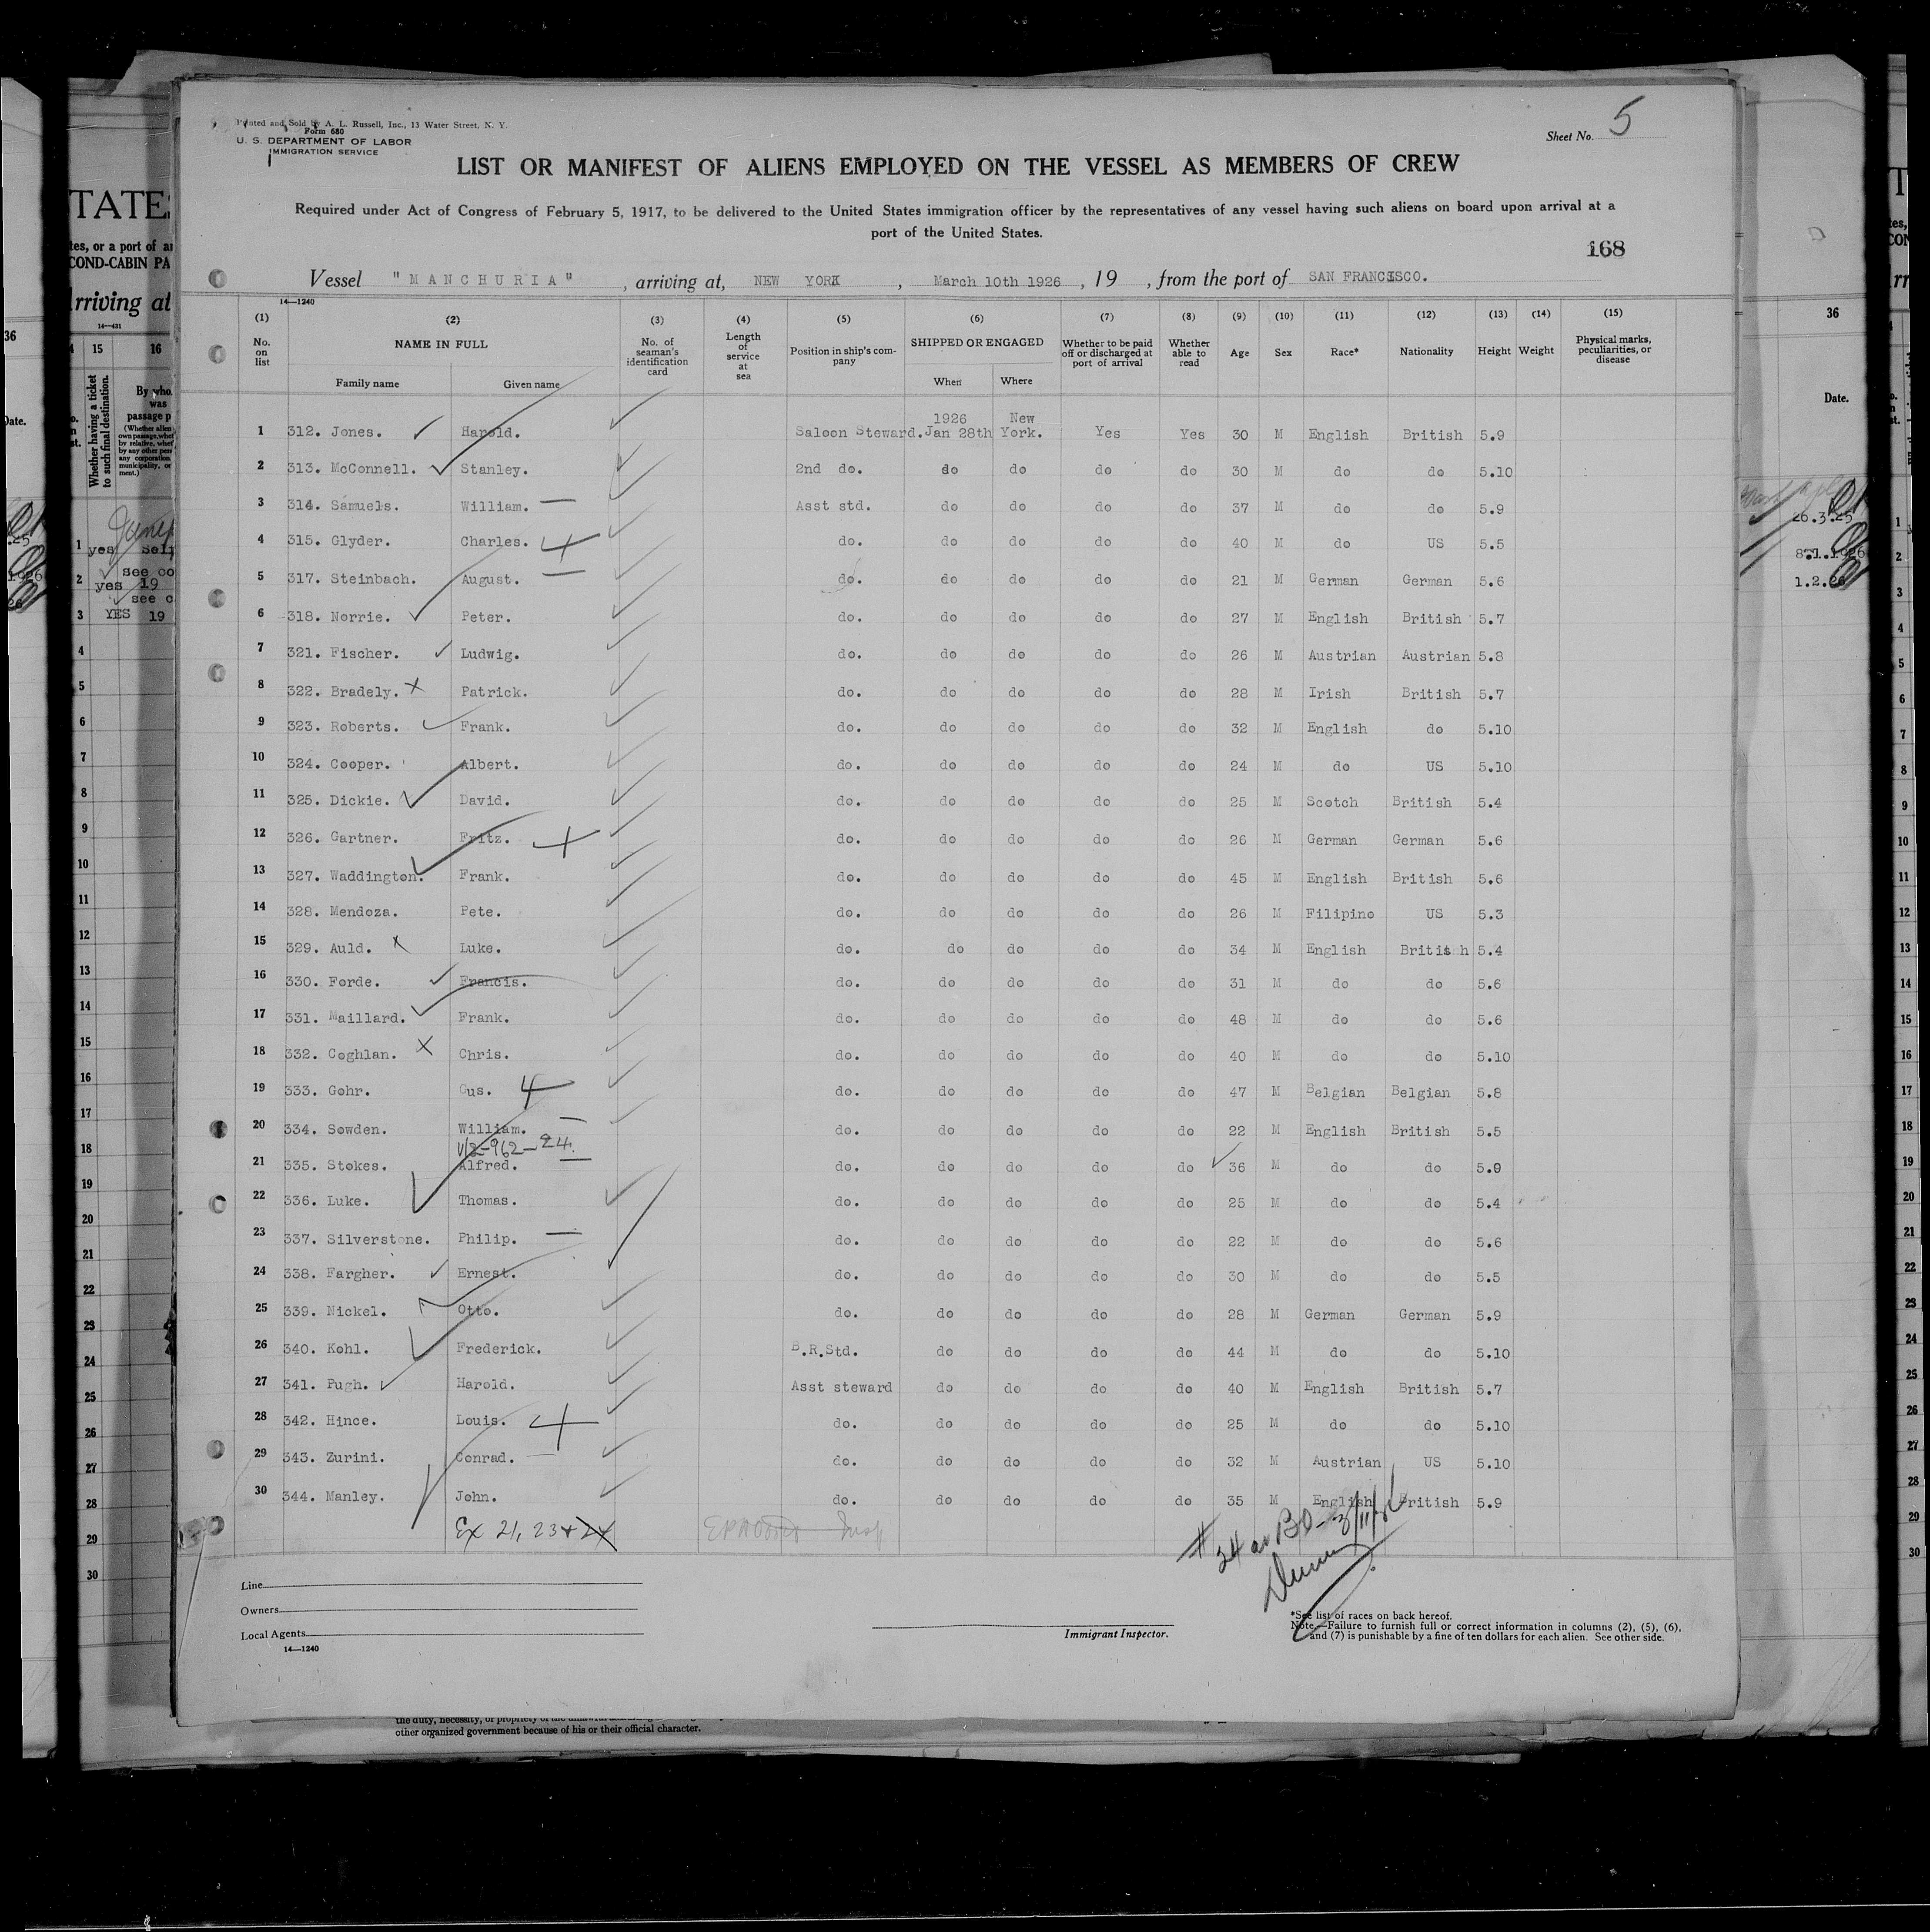 Printed and Sold by A. L. Russell, Inc., 13 Water Street, N. Y.
Form 680
U. S. DEPARTMENT OF LABOR
IMMIGRATION SERVICE
Sheet No. 5
LIST OR MANIFEST OF ALIENS EMPLOYED ON THE VESSEL AS MEMBERS OF CREW
Required under Act of Congress of February 5, 1917, to be delivered to the United States immigration officer by the representatives of any vessel having such aliens on board upon arrival at a
port of the United States.
168
Vessel "MANCHURIA", arriving at, NEW YORK, March 10th 1926, 19 , from the port of SAN FRANCISCO.
14—1240
(1) (2) (3) (4) (5) (6) (7) (8) (9) (10) (11) (12) (13) (14) (15)
No. on list NAME IN FULL Family name Given name No. of seaman's identification card Length of service at sea Position in ship's company SHIPPED OR ENGAGED When Where Whether to be paid off or discharged at port of arrival Whether able to read Age Sex Race* Nationality Height Weight Physical marks, peculiarities, or disease
1926 New
1 312. Jones. Harold. Saloon Steward. Jan 28th York. Yes Yes 30 M English British 5.9
2 313. McConnell. Stanley. 2nd do. do do do do 30 M do do 5.10
3 314. Samuels. William. Asst std. do do do do 37 M do do 5.9
4 315. Glyder. Charles. do. do do do do 40 M do US 5.5
5 317. Steinbach. August. do. do do do do 21 M German German 5.6
6 318. Norrie. Peter. do. do do do do 27 M English British 5.7
7 321. Fischer. Ludwig. do. do do do do 26 M Austrian Austrian 5.8
8 322. Bradely. Patrick. do. do do do do 28 M Irish British 5.7
9 323. Roberts. Frank. do. do do do do 32 M English do 5.10
10 324. Cooper. Albert. do. do do do do 24 M do US 5.10
11 325. Dickie. David. do. do do do do 25 M Scotch British 5.4
12 326. Gartner. Fritz. do. do do do do 26 M German German 5.6
13 327. Waddington. Frank. do. do do do do 45 M English British 5.6
14 328. Mendoza. Pete. do. do do do do 26 M Filipino US 5.3
15 329. Auld. Luke. do. do do do do 34 M English British 5.4
16 330. Forde. Francis. do. do do do do 31 M do do 5.6
17 331. Maillard. Frank. do. do do do do 48 M do do 5.6
18 332. Coghlan. Chris. do. do do do do 40 M do do 5.10
19 333. Gohr. Gus. do. do do do do 47 M Belgian Belgian 5.8
20 334. Sowden. William. do. do do do do 22 M English British 5.5
V/2-962-24.
21 335. Stokes. Alfred. do. do do do do 36 M do do 5.9
22 336. Luke. Thomas. do. do do do do 25 M do do 5.4
23 337. Silverstone. Philip. do. do do do do 22 M do do 5.6
24 338. Fargher. Ernest. do. do do do do 30 M do do 5.5
25 339. Nickel. Otto. do. do do do do 28 M German German 5.9
26 340. Kohl. Frederick. B.R.Std. do do do do 44 M do do 5.10
27 341. Pugh. Harold. Asst steward do do do do 40 M English British 5.7
28 342. Hince. Louis. do. do do do do 25 M do do 5.10
29 343. Zurini. Conrad. do. do do do do 32 M Austrian US 5.10
30 344. Manley. John. do. do do do do 35 M English British 5.9
Ex 21, 23 & 24
Insp
# 24 as BO
Line
Owners
Local Agents
14—1240
Immigrant Inspector.
*See list of races on back hereof.
Note.—Failure to furnish full or correct information in columns (2), (5), (6),
and (7) is punishable by a fine of ten dollars for each alien. See other side.
other organized government because of his or their official character.